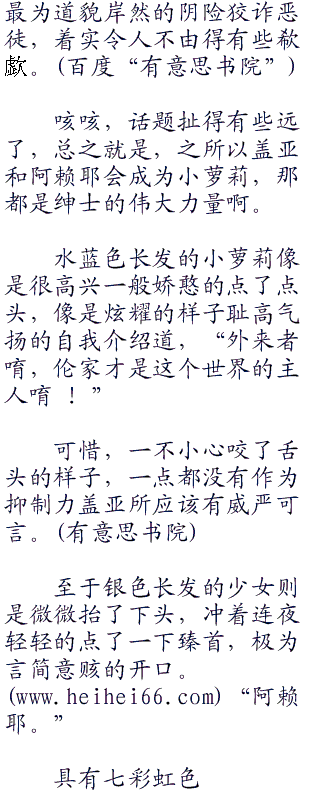 最为道貌岸然的阴险狡诈恶
徒，着实令人不由得有些欷
歔。(百度“有意思书院”)
咳咳，话题扯得有些远
了，总之就是，之所以盖亚
和阿赖耶会成为小萝莉，那
都是绅士的伟大力量啊。
水蓝色长发的小萝莉像
是很高兴一般娇憨的点了点
头，像是炫耀的样子耻高气
扬的自我介绍道，“外来者
唷，伦家才是这个世界的主
人唷 ！”
可惜，一不小心咬了舌
头的样子，一点都没有作为
抑制力盖亚所应该有威严可
言。(有意思书院)
至于银色长发的少女则
是微微抬了下头，冲着连夜
轻轻的点了一下臻首，极为
言简意赅的开口。
(www.heihei66.com)“阿赖
耶。”
具有七彩虹色